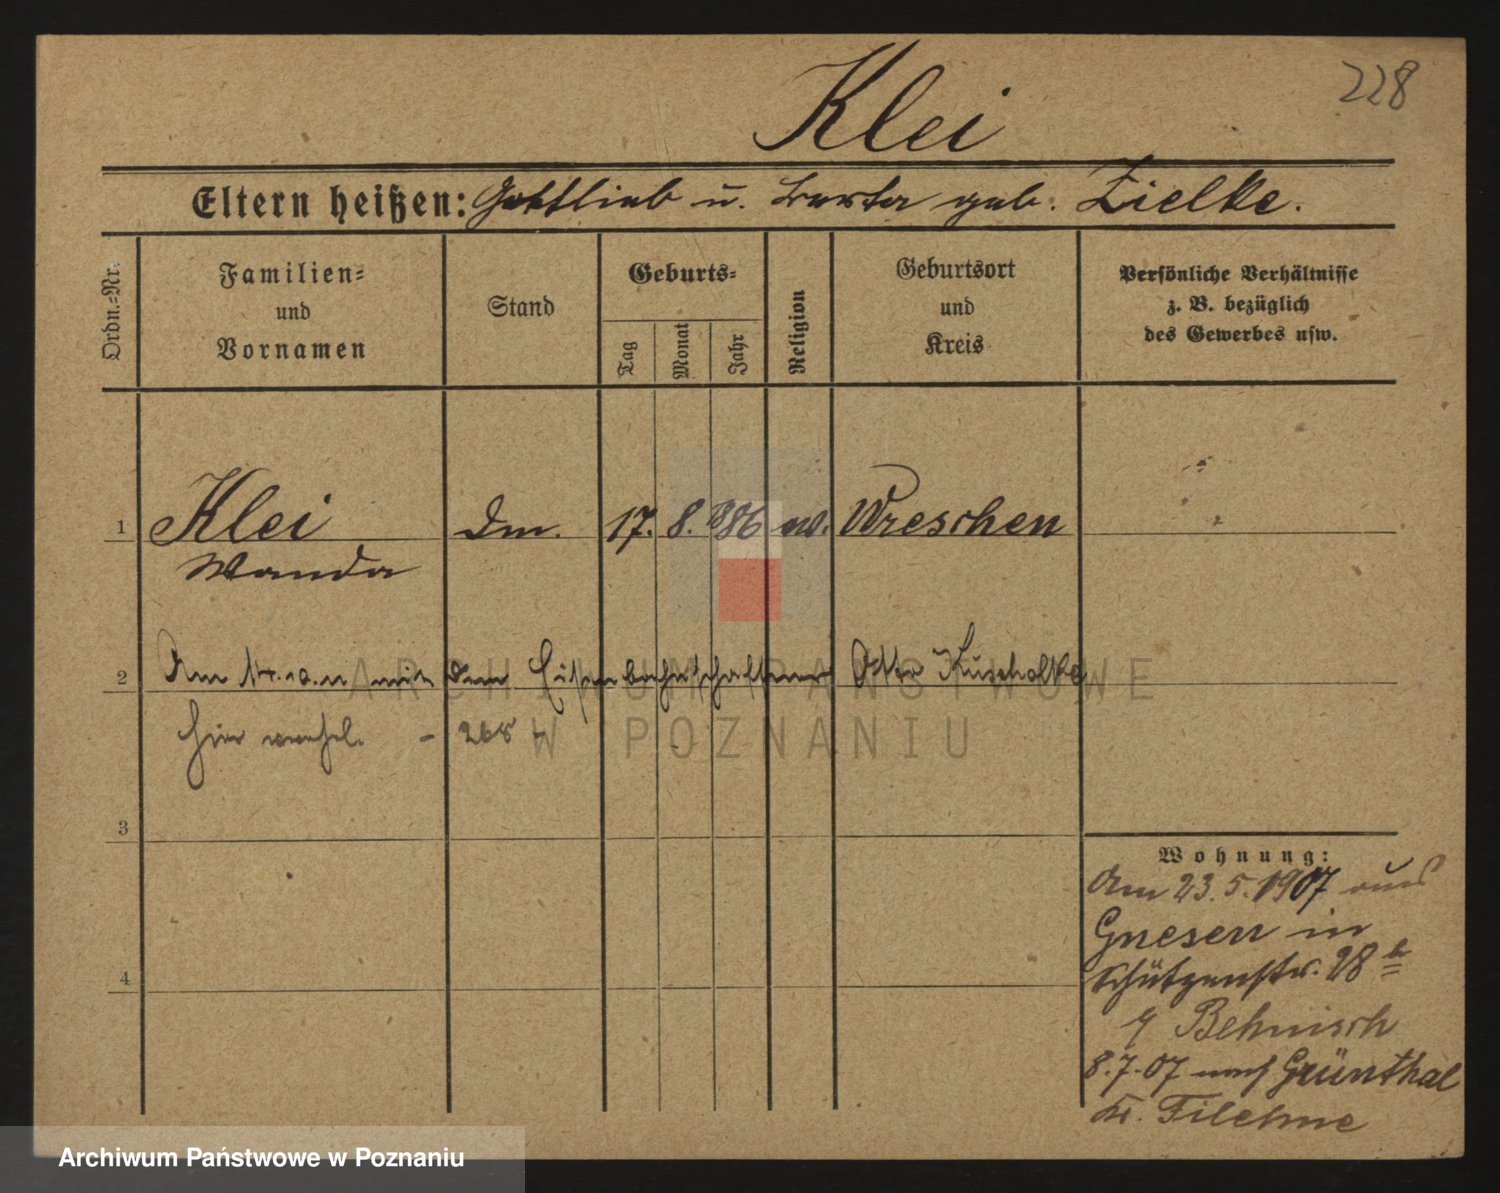 228
Klei
Eltern heißen: Gottlieb u. Berta geb. Zielke.
Ordn.-Nr.
Familien-
und
Vornamen
Stand
Geburts-
Tag
Monat
Jahr
Religion
Geburtsort
und
Kreis
Persönliche Verhältnisse
z. B. bezüglich
des Gewerbes usw.
1
Klei
Wanda
17. 8. 886
Wreschen
2
Am mit dem Eisenbahnschaffner Otto
hier verehel. -
3
4
Wohnung:
Am 23.5.1907 aus
Gnesen in
Schützenstr. 28
Behnisch
8.7.07 nach Grünthal
Kr. Filehne
ARCHIWUM PAŃSTWOWE
W POZNANIU
Archiwum Państwowe w Poznaniu